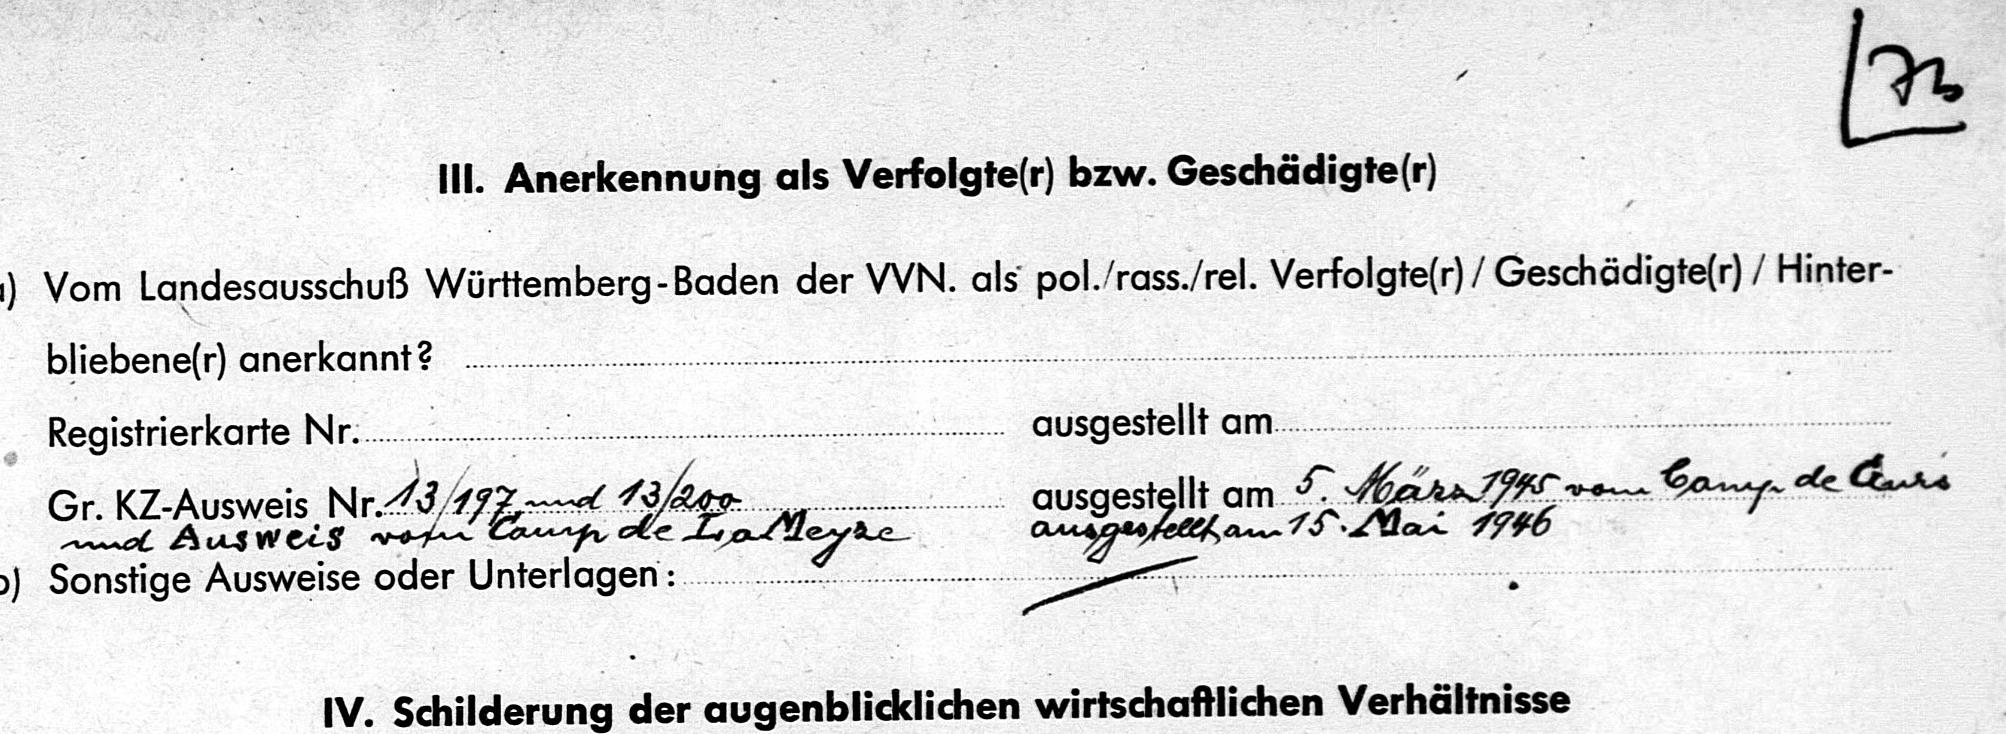 III. Anerkennung als Verfolgte(r) bzw. Geschädigte(r)
a) Vom Landesausschuß Württemberg-Baden der VVN. als pol./rass./rel. Verfolgte(r) / Geschädigte(r) / Hinter-
bliebene(r) anerkannt?
Registrierkarte Nr. ausgestellt am
Gr. KZ-Ausweis Nr. 13/197 und 13/200 ausgestellt am 5. März 1945 vom Camp de
und Ausweis vom Camp de La Meyze ausgestellt am 15. Mai 1946
b) Sonstige Ausweise oder Unterlagen:
IV. Schilderung der augenblicklichen wirtschaftlichen Verhältnisse